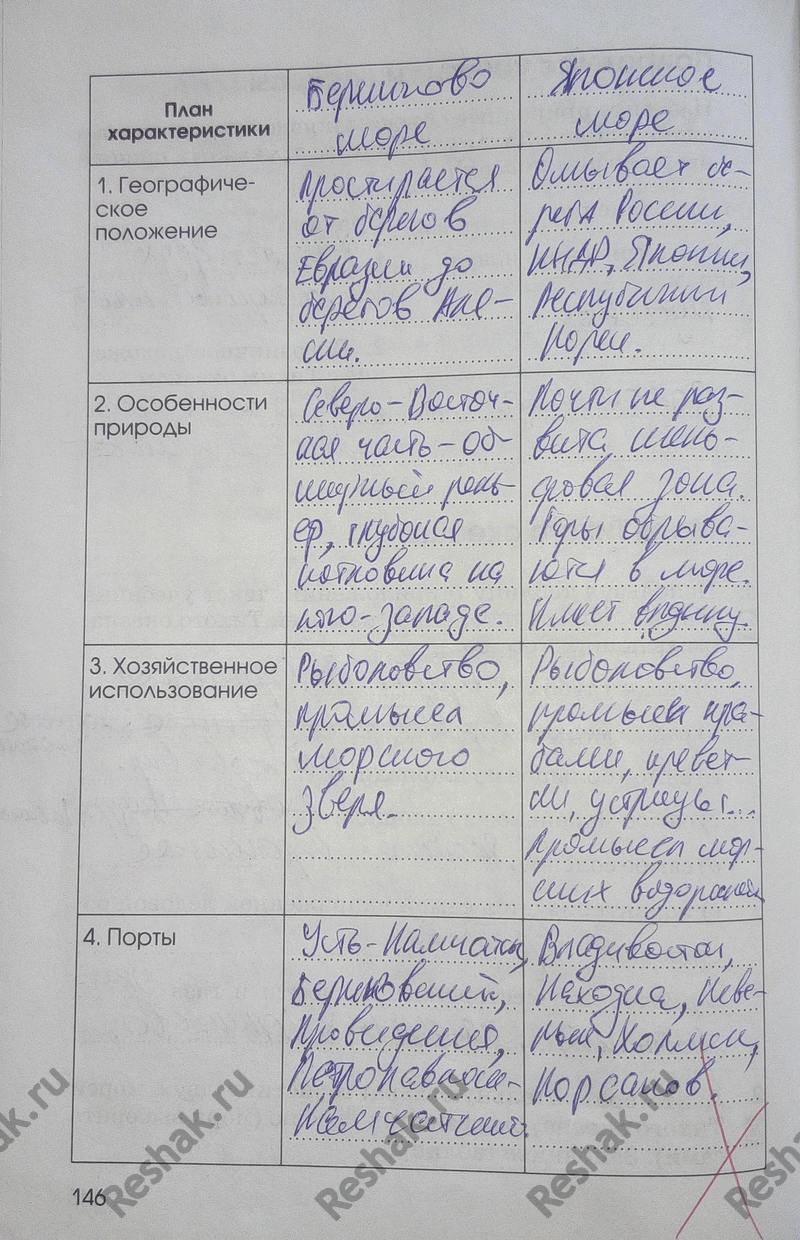 План
характеристики
Берингово
море
Японское
море
1. Географиче-
ское
положение
Простирается
от берегов
Евразии до
берегов Аля-
ски.
Омывает бе-
рега России,
КНДР, Японии,
Республики
Кореи.
2. Особенности
природы
Северо-Восточ-
ная часть - об-
ширный шель-
ф, глубокая
котловина на
юго-западе.
Почти не раз-
вита шель-
фовая зона.
Горы обрыва-
ются в море.
Имеет впадину.
3. Хозяйственное
использование
Рыболовство,
промысел
морского
зверя.
Рыболовство,
промысел кра-
бами, кревет-
ки, устрицы...
Промысел мор-
ских водорослей
4. Порты
Усть-Камчатск,
Беринговский,
Провидения,
Петропавловск-
Камчатский.
Владивосток,
Находка, Неве-
льск, Холмск,
Корсаков.
146
Reshak.ru
Reshak.ru
Reshak.ru
Reshak.ru
Reshak.ru